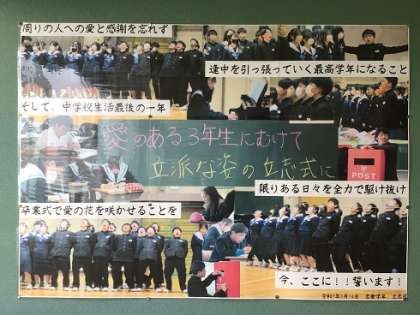 周りの人への愛と感謝を忘れず
逢中を引っ張っていく最高学年になること
そして、中学校生活最後の一年
愛のある3年生にむけて
立派な姿の立志式に
POST
限りある日々を全力で駆け抜け
卒業式で愛の花を咲かせることを
今、ここに!!誓います!